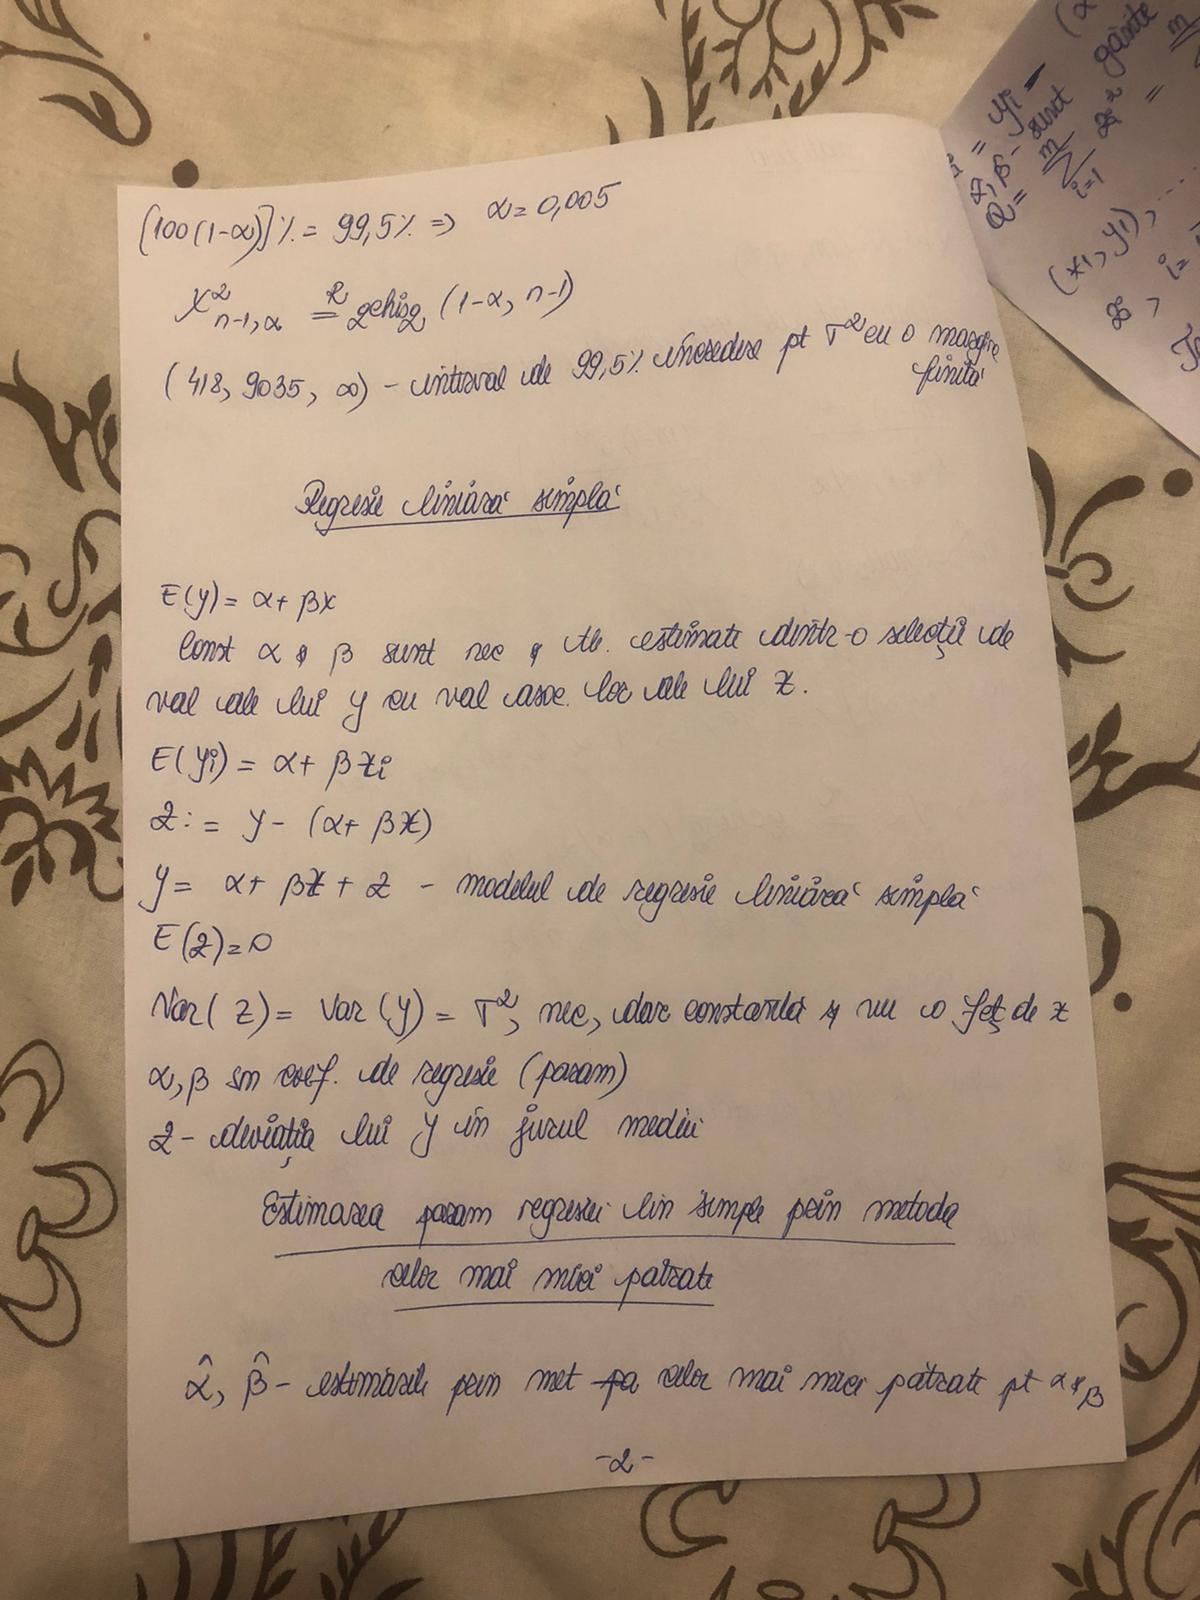 [100(1-α)]% = 99,5% => α = 0,005
χ²n-1,α =R qchisq (1-α, n-1)
(418, 9035, ∞) - interval de 99,5% încredere pt σ² cu o margine
finită
Regresie liniară simplă
E(y) = α + βx
Const α și β sunt nec și tb. estimate dintr-o selecție de
val ale lui y cu val asoc. lor ale lui x.
E(yi) = α + βxi
Z := y - (α + βx)
y = α + βx + Z - modelul de regresie liniară simplă
E(Z) = 0
Var(Z) = Var(y) = σ², nec, dar constantă și nu o fcț de x
α, β sn coef. de regresie (param)
Z - deviația lui y în jurul mediei
Estimarea param regresiei lin simple prin metoda
celor mai mici pătrate
α̂, β̂ - estimările prin met celor mai mici pătrate pt α și β
-2-
= yi -
α, β - sunt
Q = m∑i=1 Z²
găsite
(x1, y1), ....